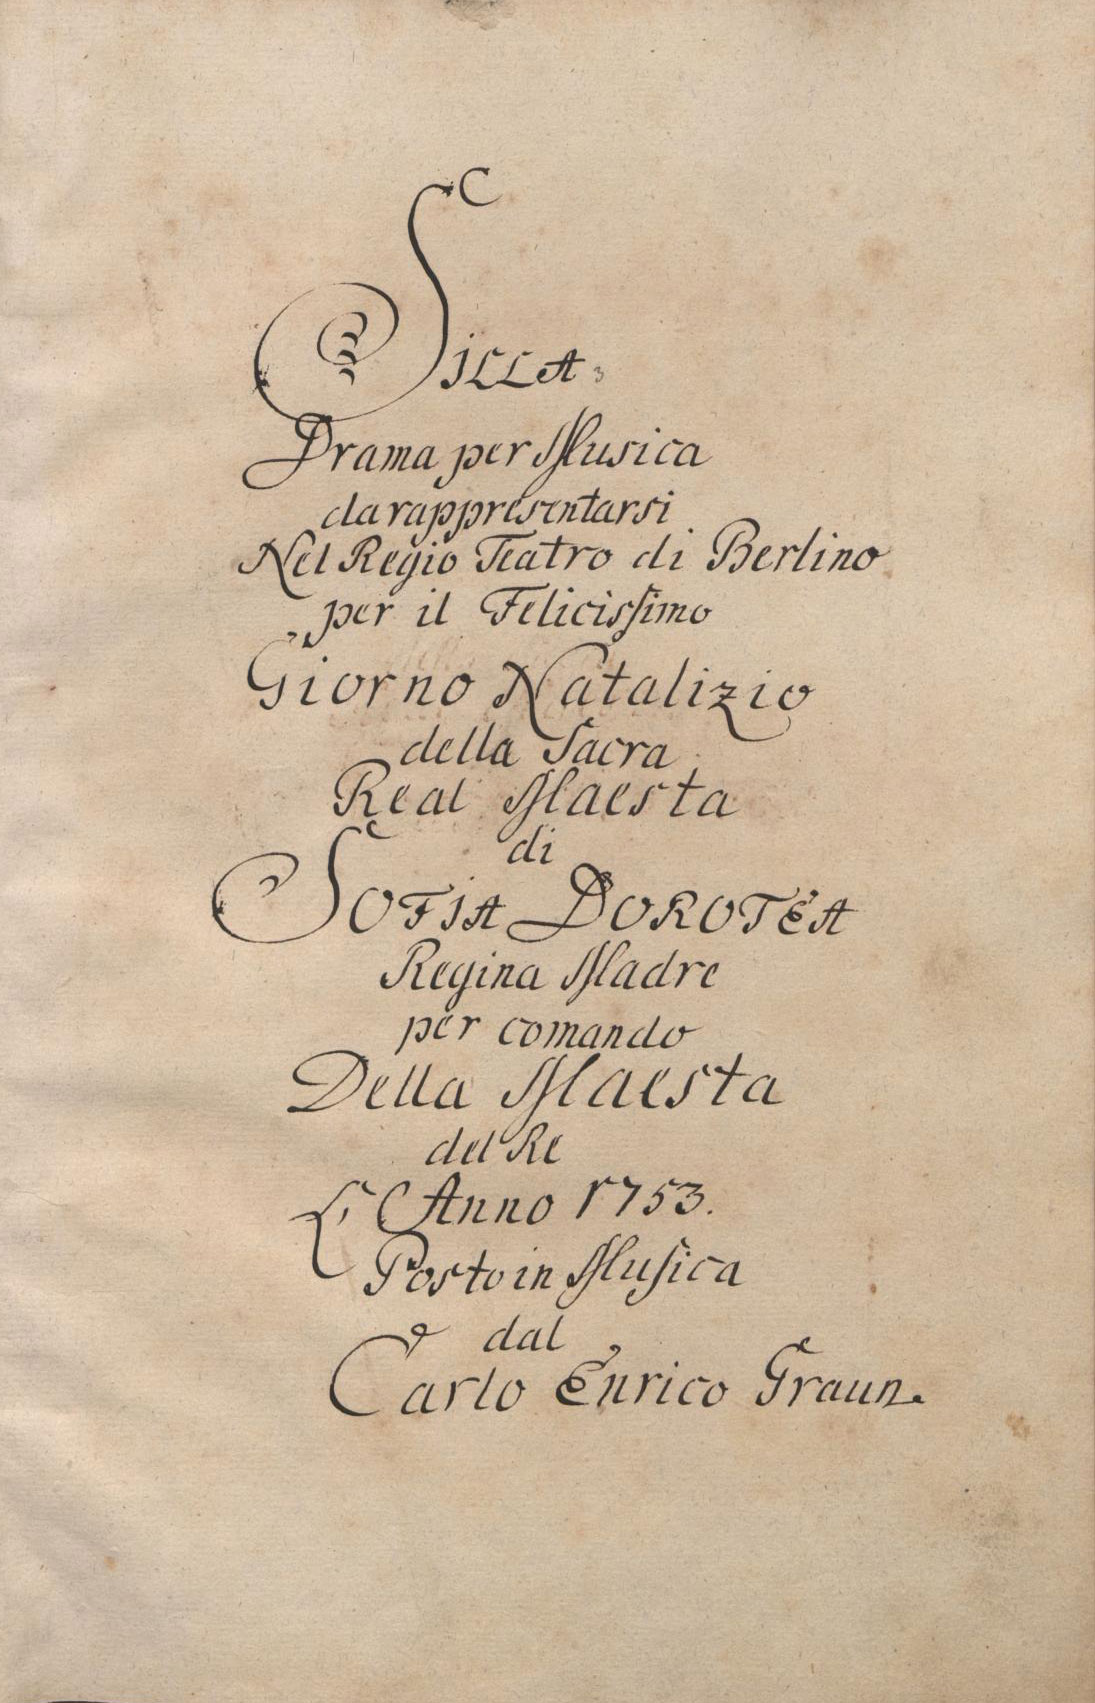 SILLA,
Drama per Musica
da rappresentarsi
Nel Regio Teatro di Berlino
per il Felicissimo
Giorno Natalizio
della Sacra
Real Maesta
di
SOFIA DOROTEA
Regina Madre
per comando
Della Maesta
del Re
L'Anno 1753.
Posto in Musica
dal
Carlo Enrico Graun.